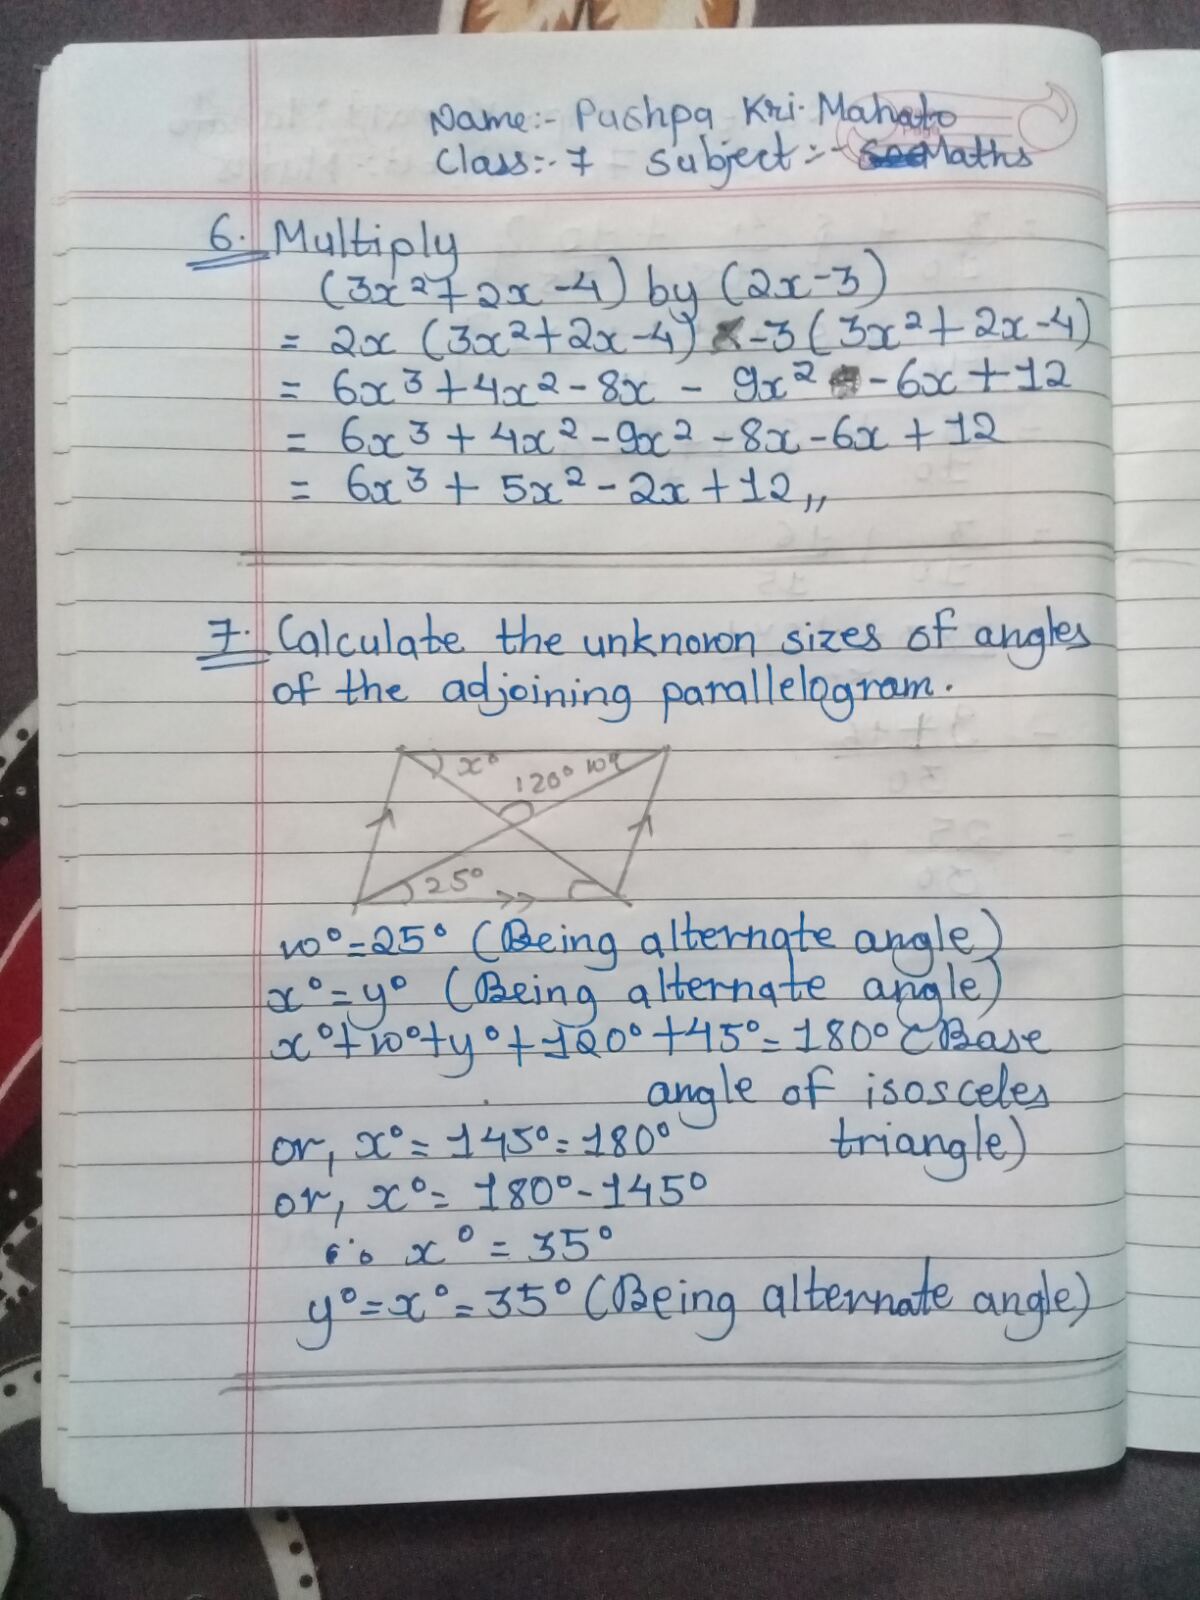 Name:- Pushpa Kri. Mahato
Class:- 7 Subject:- Maths
6. Multiply
(3x²+2x-4) by (2x-3)
= 2x (3x²+2x-4) -3(3x²+2x-4)
= 6x³+4x²-8x - 9x² -6x+12
= 6x³+4x²-9x²-8x-6x+12
= 6x³+5x²-2x+12,,
7. Calculate the unknown sizes of angles
of the adjoining parallelogram.
x° 120° w°
25°
w°=25° (Being alternate angle)
x°=y° (Being alternate angle)
x°+w°+y°+120°+45°=180° (Base
angle of isosceles
or, x°=145°=180° triangle)
or, x°=180°-145°
∴ x°=35°
y°=x°=35° (Being alternate angle)